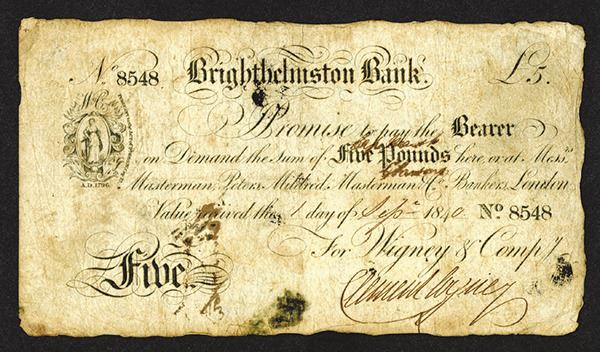 No. 8548 Brighthelmston Bank. £5.
A.D. 1796.
I Promise to pay the Bearer
on Demand the Sum of Five Pounds here or at Messrs.
Masterman, Peters, Mildred, Masterman & Co. Bankers, London
Value received this 1 day of Sepr. 1840 No 8548
For Wigney & Compy.
Five
Clement Wigney